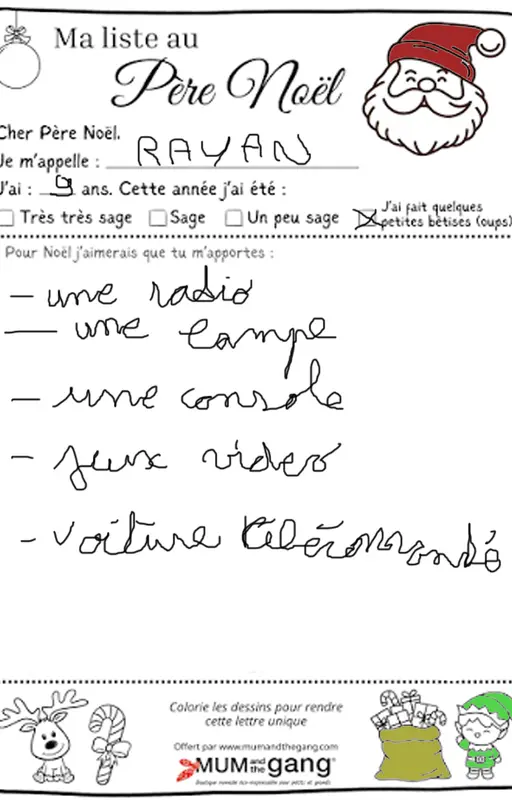 Ma liste au
Père Noël
Cher Père Noël,
Je m'appelle : RAYAN
J'ai : 9 ans. Cette année j'ai été :
Très très sage Sage Un peu sage J'ai fait quelques petites bêtises (oups)
Pour Noël j'aimerais que tu m'apportes :
- une radio
- une lampe
- une console
- jeux video
- voiture télécommandé
Colorie les dessins pour rendre
cette lettre unique
Offert par www.mumandthegang.com
MUM and the gang
Boutique mode éco-responsable pour petits et grands